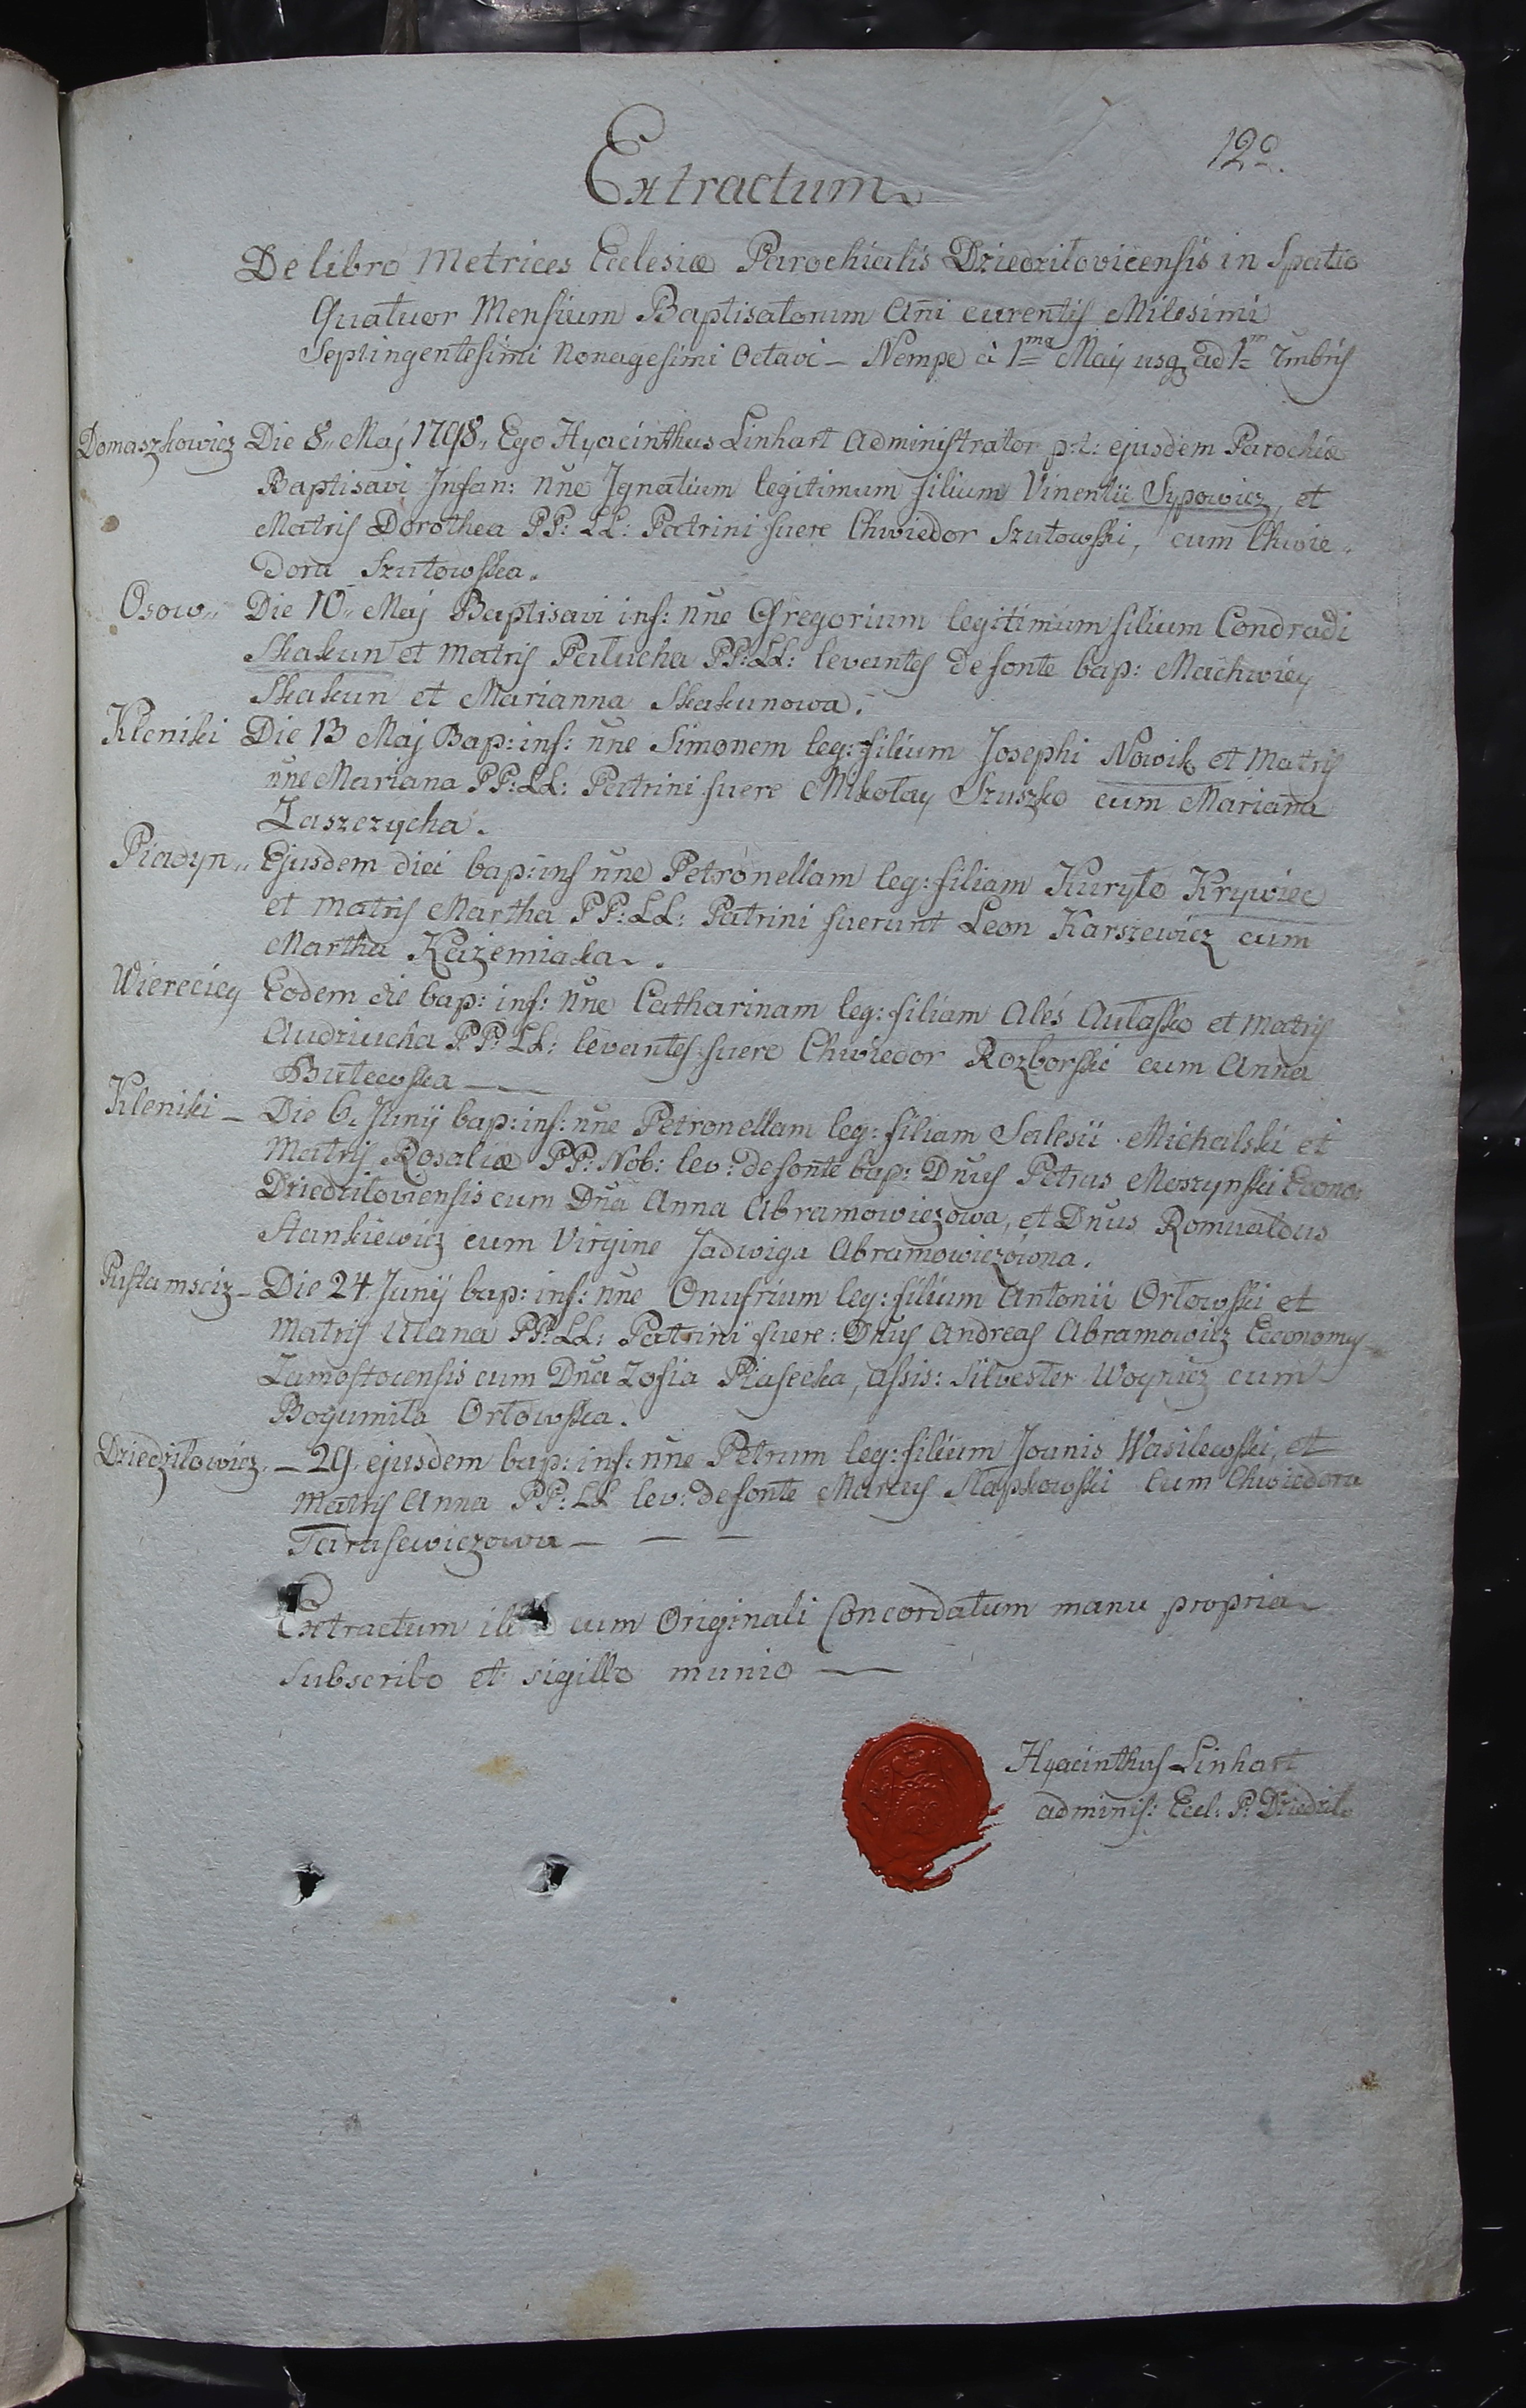 129.
Extractum
De libro Metrices Eclesiæ Parochialis Dziedziłovicensis in Spatio
Quatuor Mensium Baptisatorum Añi curentis Milesimi
Septingentesimi Nonagesimi Octavi – Nempe à 1ma Maij usq ad 1m 7mbris
Domaszkowicz Die 8,, Maj 1798,, Ego Hyacinthus Linhart Administrator p:t: ejusdem Parochiæ
Baptisavi Infan: ñne Ignatium legitimum filium Vinentii Sypowicz, et
Matris Dorothea PP: LL: Patrini fuere Chwiedor Szutowski, cum Chwie-
dora Szutowska.
Osow,, Die 10,, Maj Baptisavi inf: ñne Gregorium legitimum filium Condradi
Skakun et Matris Palucha PP: LL: levantes de fonte bap: Machwiey
Skakun et Marianna Skakunowa.
Kleniki Die 13 Maj Bap: inf: ñne Simonem leg: filium Josephi Nowik et Matris
ñne Mariana PP: LL: Patrini fuere Mikołay Szuszko cum Mariana
Zaszczycha.
Piadyn,, Ejusdem diei bap: inf ñne Petronellam leg: filiam Kuryło Krywiec
et Matris Martha PP: LL: Patrini fuerunt Leon Karszewicz cum
Martha Kaziemiaka.
Wierecicy Eodem die bap: inf: ñne Catharinam leg: filiam Aleś Aułasko et Matris
Audziucha PP: LL: levantes fuere Chwiedor Rozborski cum Anna
Butewska —
Kleniki – Die 6. Junij bap: inf: ñne Petronellam leg: filiam Salesii Michalski et
Matris Rosaliæ PP: Nob: lev: de fonte bap: Dñus Petrus Moszynski Econo:
Dziedziłowiensis cum Dña Anna Abramowiczowa, et Dñus Romualdus
Stankiewicz cum Virgine Jadwiga Abramowiczówna.
Pustamsciz – Die 24 Junij bap: inf: ñne Onufrium leg: filium Antonii Orłowski et
Matris Ulana PP: LL: Patrini fuere: Dñus Andreas Abramowicz Economus
Zamostocensis cum Dña Zofia Piasecka, assis: Silvester Woynicz cum
Bogumiła Orłowska.
Dziedziłowicz. – 29. ejusdem bap: inf: ñne Petrum leg: filium Joanis Wasilewski, et
Matris Anna PP: LL lev: de fonte Marcus Słapkowski cum Chwiedora
Tarasewiczowa — — —
Extractum cum Originali Concordatum manu propria
Subscribo et sigillo munio —
Hyacinthus Linhart
adminis: Eccl: P: Dziedziło